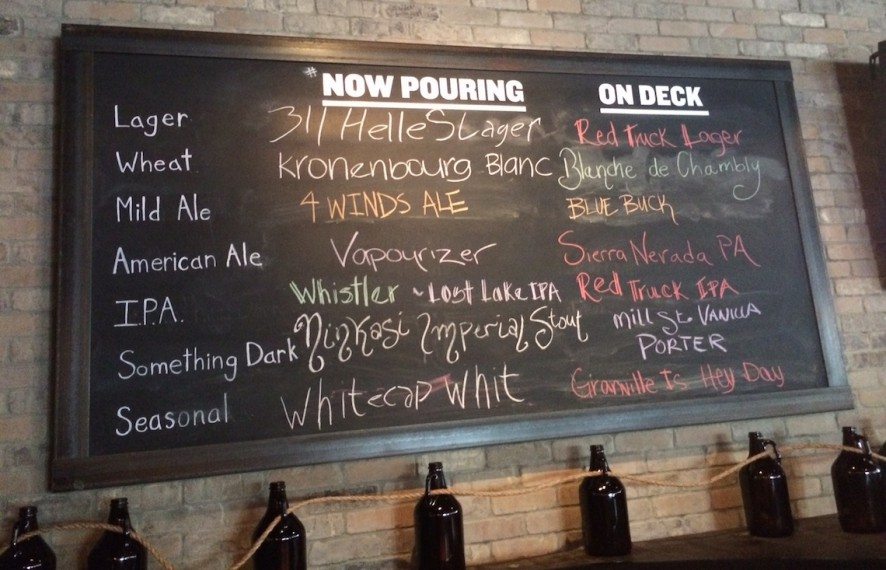 #NOW POURING ON DECK
Lager 311 Helles Lager Red Truck Lager
Wheat Kronenbourg Blanc Blanche de Chambly
Mild Ale 4 WINDS ALE BLUE BUCK
American Ale Vapourizer Sierra Nevada PA
I.P.A. Whistler ~ Lost Lake IPA Red Truck IPA
Something Dark Ninkasi Imperial Stout Mill St. Vanilla
PORTER
Seasonal Whitecap Whit Granville Is Hey Day